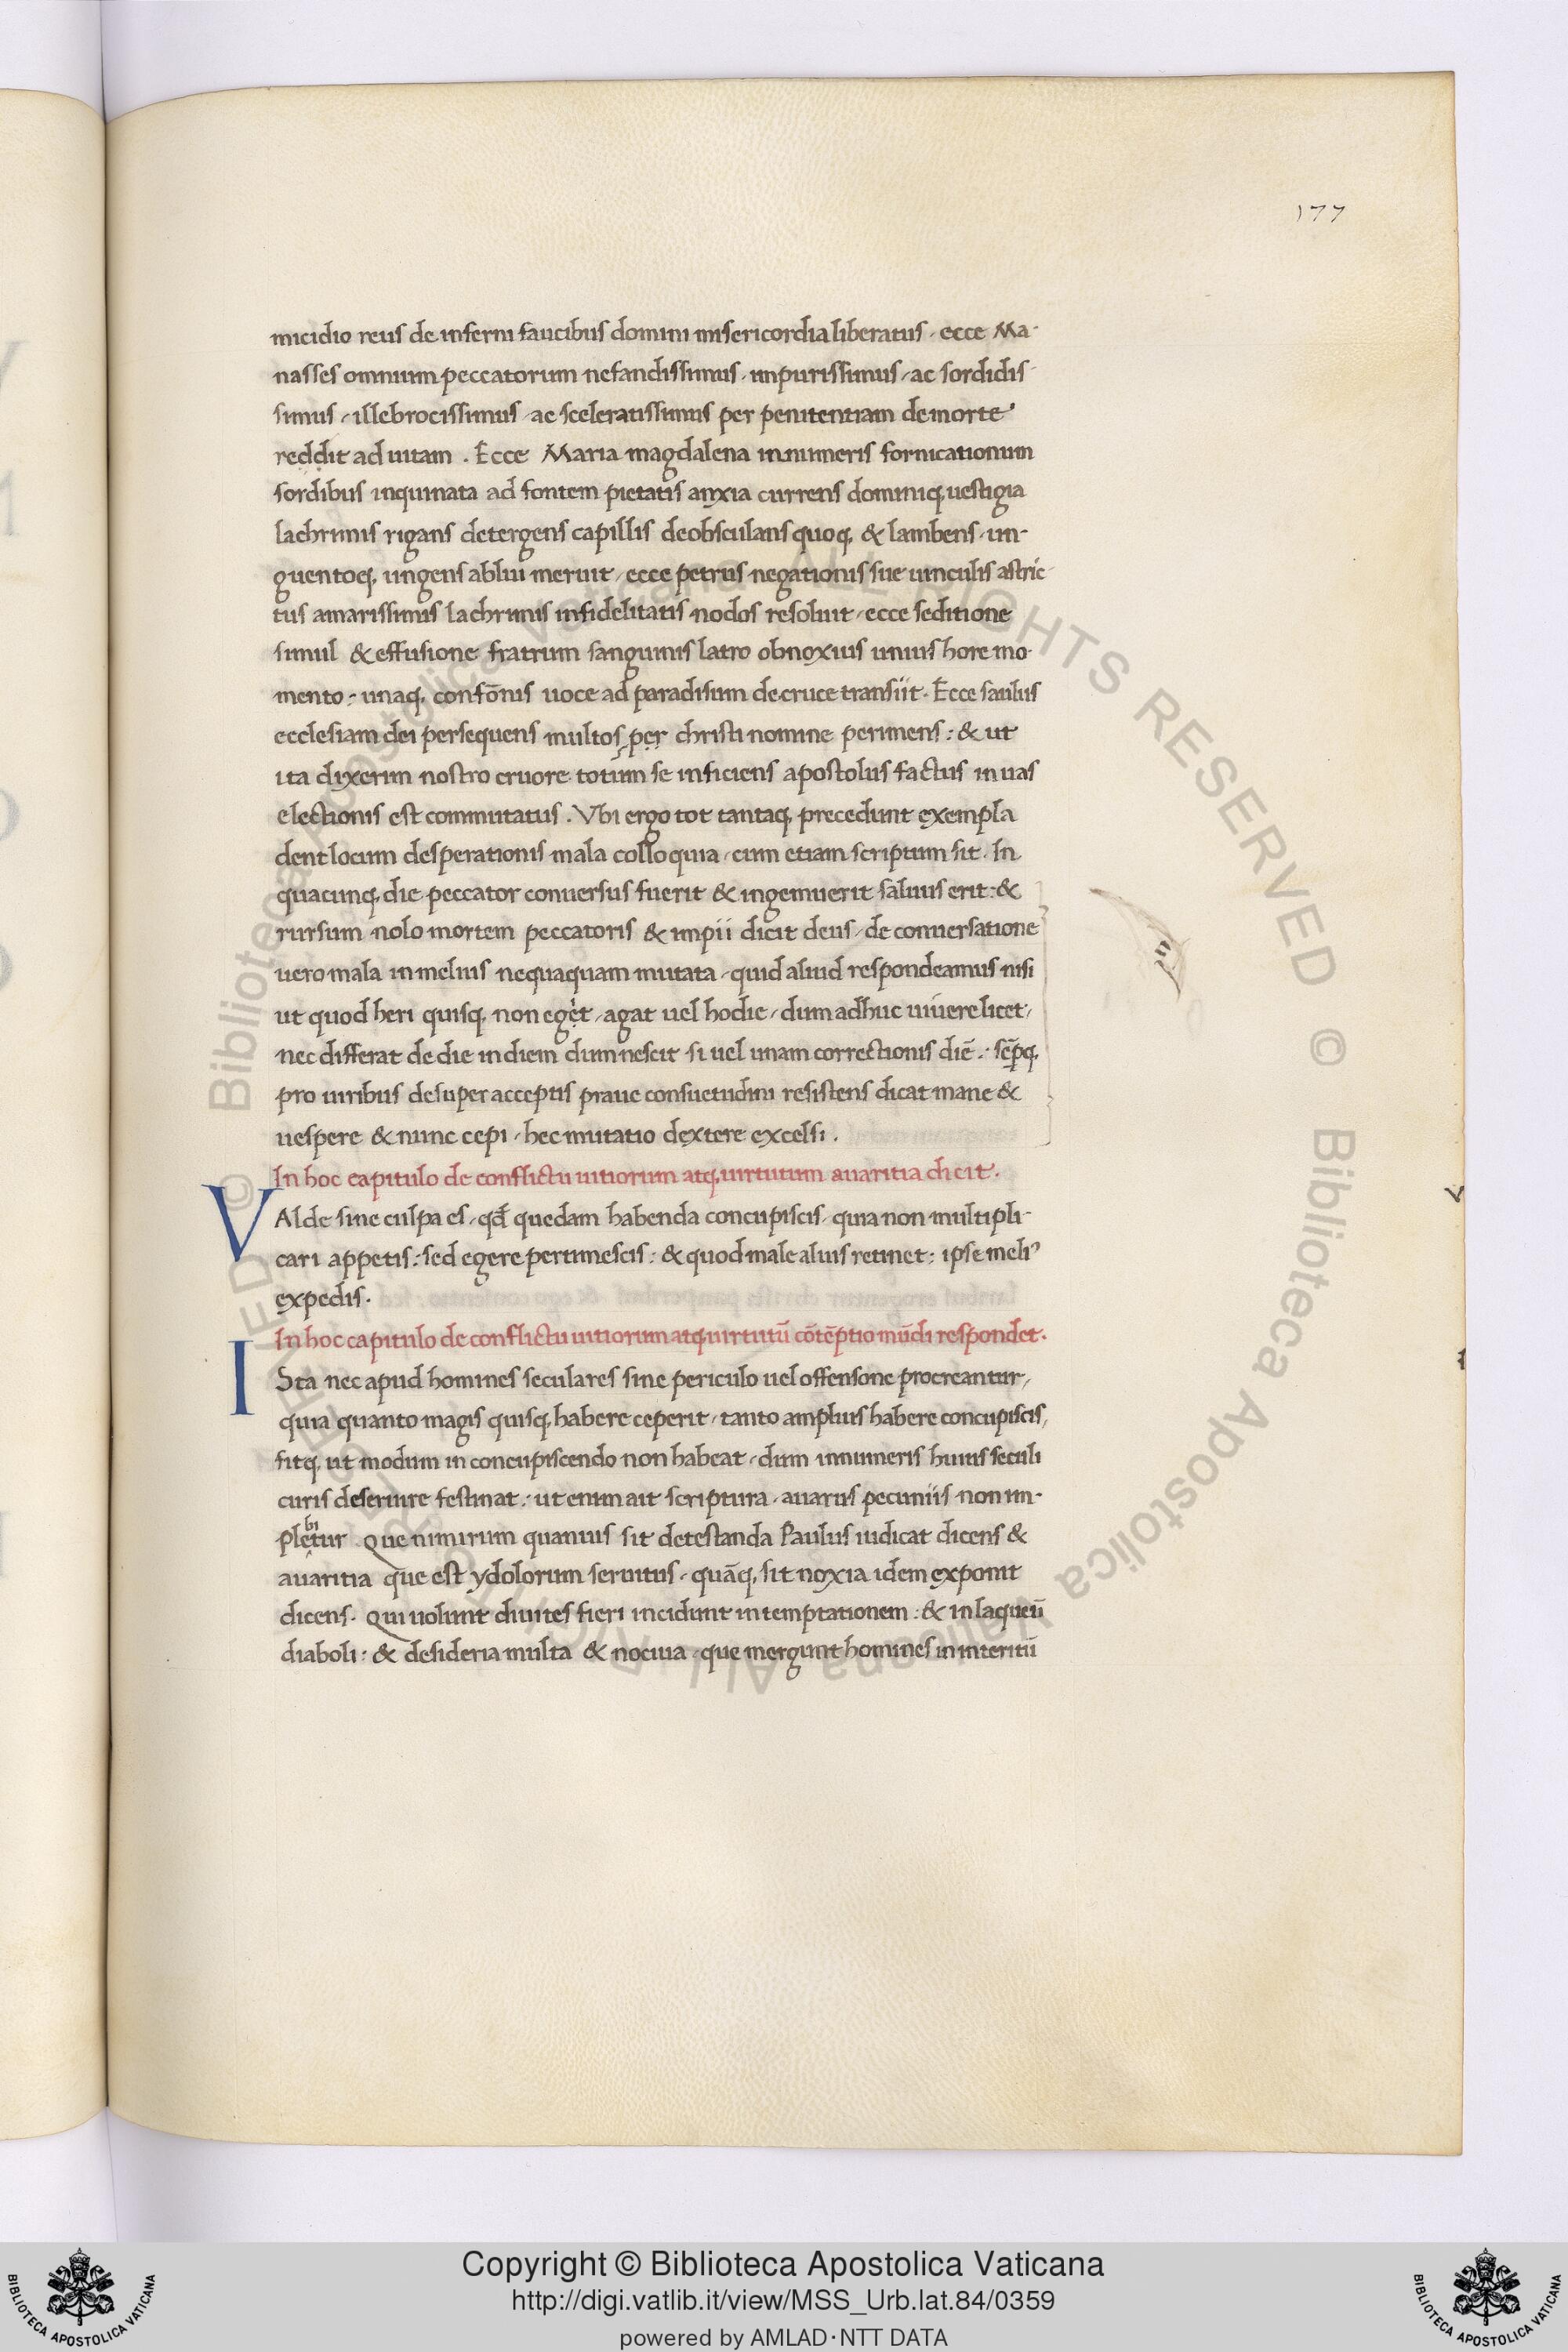 177
micidio reus de inferni faucibus domini misericordia liberatus, ecce Ma-
nasses omnium peccatorum nefandissimus, impurissimus, ac sordidis-
simus, illebrocissimus, ac sceleratissimus per penitentiam de morte
reddit ad uitam. Ecce Maria magdalena innumeris fornicationum
sordibus inquinata ad fontem pietatis anxia currens dominiq; uestigia
lachrimis rigans detergens capillis deobsculans quoq; & lambens, un-
guentoq; ungens ablui meruit, ecce petrus negationis sue uinculis astric-
tus amarissimis lachrimis infidelitatis nodos resoluit, ecce seditione
simul & effusione fratrum sanguinis latro obnoxius unius hore mo-
mento: unaq; confōnis uoce ad paradisum de cruce transiit. Ecce saulus
ecclesiam dei persequens multos per christi nomine perimens: & ut
ita dixerim nostro cruore totum se inficiens apostolus factus in uas
electionis est commutatus. Vbi ergo tot tantaq; precedunt exempla
dent locum desperationis mala colloquia, cum etiam scriptum sit. In
quacunq; die peccator conuersus fuerit & ingemuerit saluus erit: &
rursum nolo mortem peccatoris & impii dicit deus, de conuersatione
uero mala in melius nequaquam mutata, quid aliud respondeamus nisi
ut quod heri quisq; non eget, agat uel hodie, dum adhuc uiuere licet,
nec differat de die in diem dum nescit si uel unam correctionis diē: sēpq;
pro uiribus desuper acceptis praue consuetudini resistens dicat mane &
uespere & nunc cepi, hec mutatio dextere excelsi.
In hoc capitulo de conflictu uitiorum atq; uirtutum auaritia dicit.
VAlde sine culpa es, qđ quedam habenda concupiscis, quia non multipli-
cari appetis: sed egere pertimescis: & quod male alius retinet: ipse meliꝰ
expedis.
In hoc capitulo de conflictu uitiorum atq; uirtutū cōtēptio mūdi respondet.
ISta nec apud homines seculares sine periculo uel offensone procreantur,
quia quanto magis quisq; habere ceperit, tanto amplius habere concupiscis,
fitq; ut modum in concupiscendo non habeat, dum innumeris huius seculi
curis deseruire festinat: ut enim ait scriptura, auarus pecuniis non im-
plebitur. Que nimirum quamuis sit detestanda Paulus iudicat dicens &
auaritia que est ydolorum seruitus, quāq; sit noxia idem exponit
dicens. Qui uolunt diuites fieri incidunt in temptationem: & in laqueū
diaboli: & desideria multa & nociua, que mergunt homines in interitū
© Biblioteca Apostolica Vaticana ALL RIGHTS RESERVED © Biblioteca Apostolica Vaticana ALL RIGHTS RESERVED
BIBLIOTECA APOSTOLICA VATICANA
Copyright © Biblioteca Apostolica Vaticana
http://digi.vatlib.it/view/MSS_Urb.lat.84/0359
powered by AMLAD·NTT DATA
BIBLIOTECA APOSTOLICA VATICANA